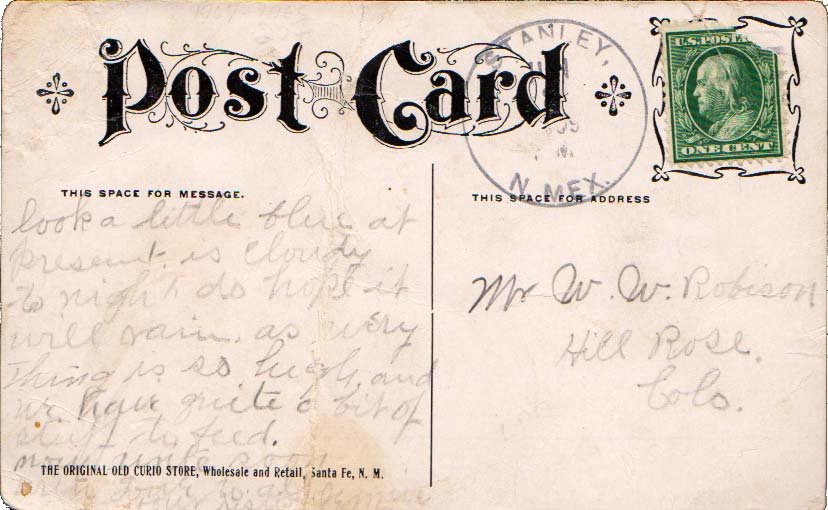 Post Card
STANLEY,
JUN
N. MEX.
U.S. POSTA
ONE CENT
THIS SPACE FOR MESSAGE.
THIS SPACE FOR ADDRESS
look a little blue at
present. is cloudy
to night do hope it
will rain. as every
thing is so high, and
we have quite a bit of
stuff to feed.
now write soon
with
your
Mr W. W. Robison
Hill Rose.
Colo.
THE ORIGINAL OLD CURIO STORE, Wholesale and Retail, Santa Fe, N. M.